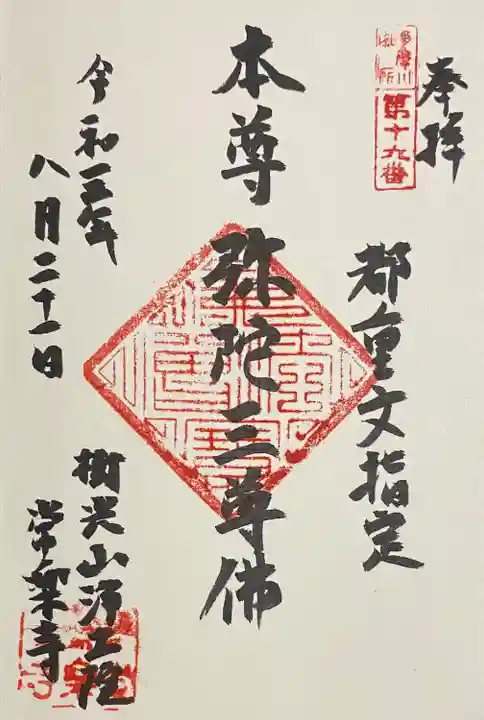 奉拝
多摩川
霊所
第十九番
都重文指定
本尊 弥陀三尊佛
令和三年
八月二十一日
樹光山浄土院
常楽寺